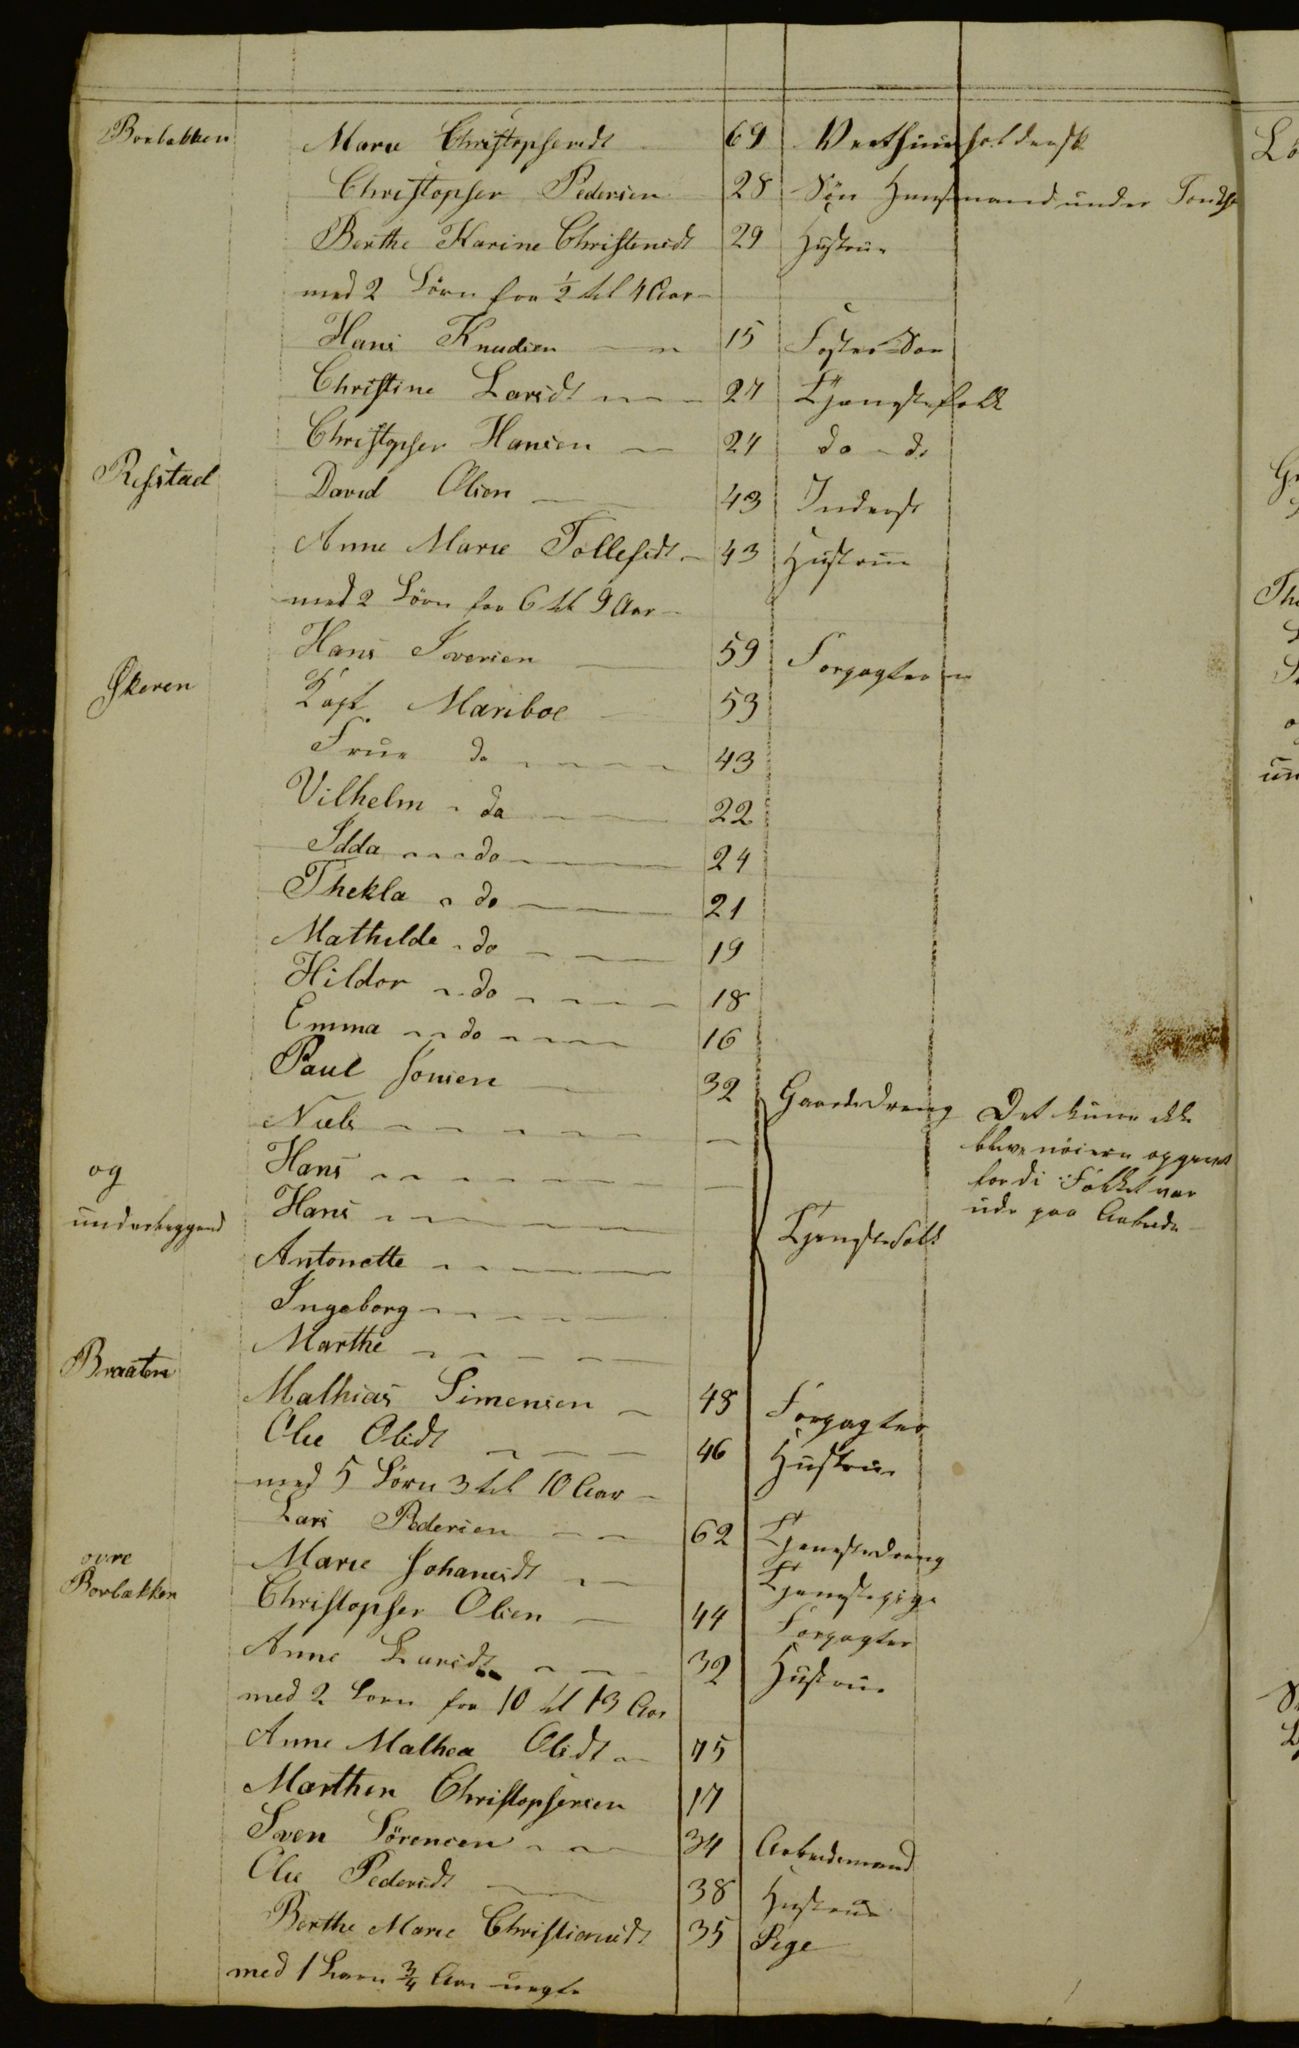 Borbakken Marie Christophersdt 69 Værthuusholderske
Christopher Pedersen 28 Søn Huusmand under
Berthe Karine Christensdt 29 Hustrue
med 2 Börn fra ½ til 4 Aar
Hans Knudsen 15 Foster Søn
Christine Larsdt 27 Tjenestefolk
Christopher Hansen 24 do do
Risstad David Olson 43 Inderst
Anne Marie Tollefsdt 43 Hustrue
med 2 Börn fra 6 til 9 Aar
Hans Iversen 59 Forpagter
Økeren Kapt Mariboe 53
Frue do 43
Vilhelm do 22
Idda do 24
Thekla do 21
Mathilde do 19
Hildor do 18
Emma do 16
Paul Jonsen 32 Gaardsdreng Det kune ikke
Niels blive nöiere opgivet
og Hans fordi Folket var
underliggend Hans Tjenestefolk ude paa Arbeide
Antonette
Ingeborg
Marthe
Braaten Mathias Simensen 48 Forpagter
Olie Olsdt 46 Hustrue
med 5 Börn 3 til 10 Aar
Lars Pedersen 62 Tjenestedreng
ovre Marie Johansdt Tjenestepige
Borbakken Christopher Olsen 44 Forpagter
Anne Larsdt 32 Hustrue
med 2 Born fra 10 til 13 Aar
Anne Mathea Olsdt 75
Marthin Christophersen 17
Sven Sörensen 34 Arbeidsmand
Olie Pedersdt 38 Hustrue
Berthe Marie Christiansdt 35 Pige
med 1 Barn ¾ Aar uegte